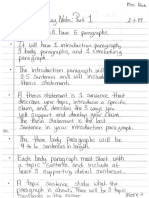 Essay Notes: Part 1
will have 5 paragraphs.
It will have 1 introduction paragraph,
3 body paragraphs, and 1 concluding
paragraph.
The introduction paragraph will be
2-5 sentences and will include
thesis statement.
A thesis statement is 1 sentence that
describes your topic, introduce a specific
claim, and describes the 3 ways
you will support and develop
The thesis statement is the last
Sentence in your introduction paragraph.
Each body paragraph will be
4 to 6 sentences in length.
Each body paragraph must start with
a topic sentence and include at
least 3 supporting detail sentences.
A topic sentence states what the
paragraph is about. It should be clear